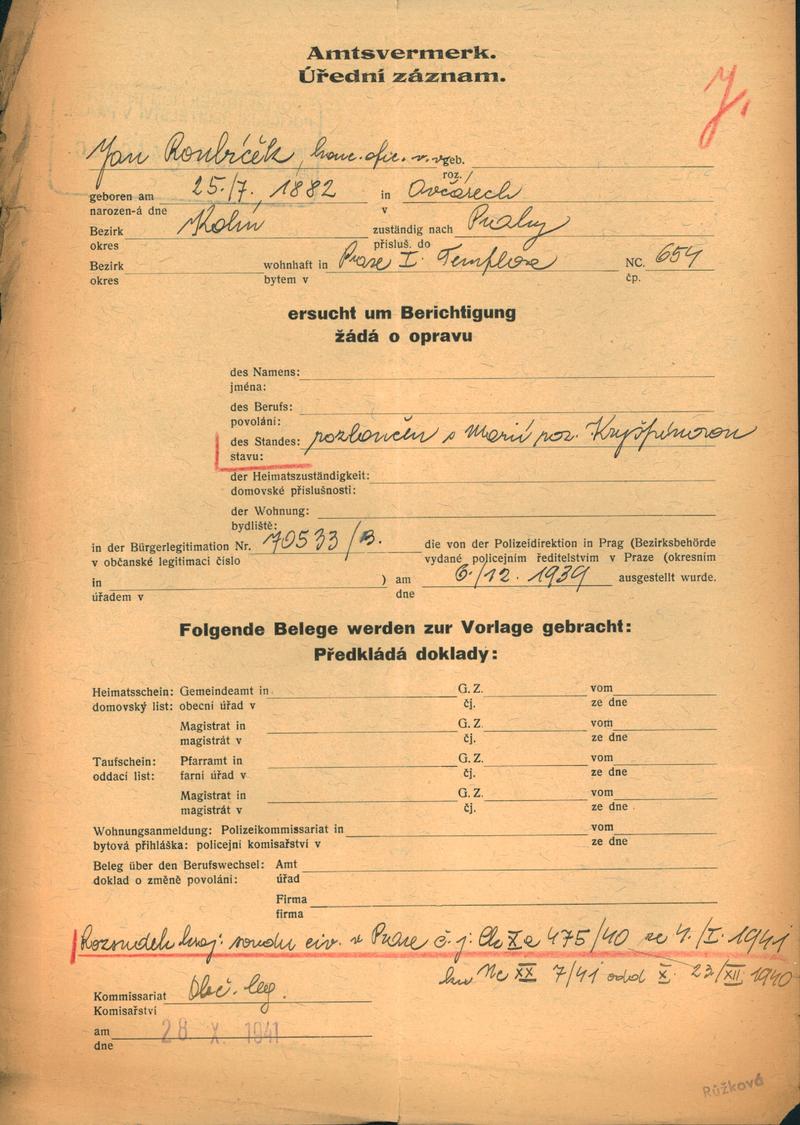 Amtsvermerk.
Úřední záznam.
Jan Roubíček, kanc. ofic. v. v. geb.
roz.
geboren am 25./7., 1882 in Ovčárech
narozen-á dne v
Bezirk Kolín zuständig nach Prahy
okres přísluš. do
Bezirk wohnhaft in Praze I. Templova NC. 654
okres bytem v čp.
ersucht um Berichtigung
žádá o opravu
des Namens:
jména:
des Berufs:
povolání:
des Standes: rozloučen s Marií roz. Kryšpínovou
stavu:
der Heimatszuständigkeit:
domovské příslušnosti:
der Wohnung:
bydliště:
in der Bürgerlegitimation Nr. 70533/B. die von der Polizeidirektion in Prag (Bezirksbehörde
v občanské legitimaci číslo vydané policejním ředitelstvím v Praze (okresním
in ) am 6./12. 1939 ausgestellt wurde.
úřadem v dne
Folgende Belege werden zur Vorlage gebracht:
Předkládá doklady:
Heimatsschein: Gemeindeamt in G. Z. vom
domovský list: obecní úřad v čj. ze dne
Magistrat in G. Z. vom
magistrát v čj. ze dne
Taufschein: Pfarramt in G. Z. vom
oddací list: farní úřad v čj. ze dne
Magistrat in G. Z. vom
magistrát v čj. ze dne
Wohnungsanmeldung: Polizeikommissariat in vom
bytová přihláška: policejní komisařství v ze dne
Beleg über den Berufswechsel: Amt
doklad o změně povolání: úřad
Firma
firma
Rozsudek kraj. soudu civ. v Praze č. j. Ck X a 475/40 ze 4./I. 1941
Nc XX 7/41 odd X. 23/XII. 1940
Kommissariat Obč. leg.
Komisařství
am 28. X. 1941
dne
Růžková